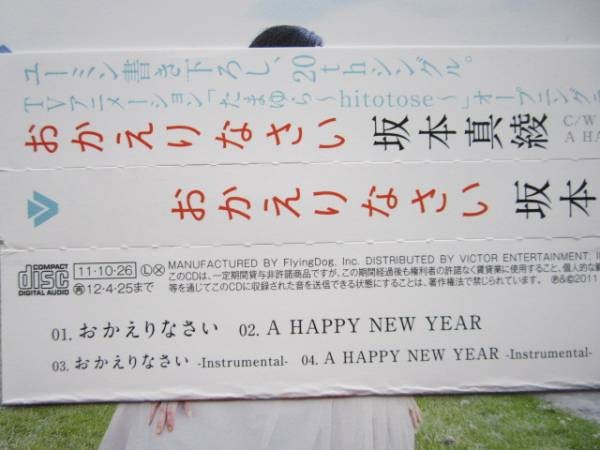 ユーミン書き下ろし、20thシングル。
TVアニメーション「たまゆら〜hitotose〜」オープニング
おかえりなさい 坂本真綾
C/W
A HA
おかえりなさい 坂本
COMPACT disc DIGITAL AUDIO
11·10·26 Ⓛ Ⓧ
㋐12·4·25まで
MANUFACTURED BY FlyingDog, Inc. DISTRIBUTED BY VICTOR ENTERTAINMENT, I
このCDは、一定期間貸与非許諾商品ですが、この期間経過後も権利者の許諾なく賃貸業に使用すること、個人的な
等を通じてこのCDに収録された音を送信できる状態にすることは、著作権法で禁じられています。 ℗&©2011
01. おかえりなさい 02. A HAPPY NEW YEAR
03. おかえりなさい -Instrumental- 04. A HAPPY NEW YEAR -Instrumental-